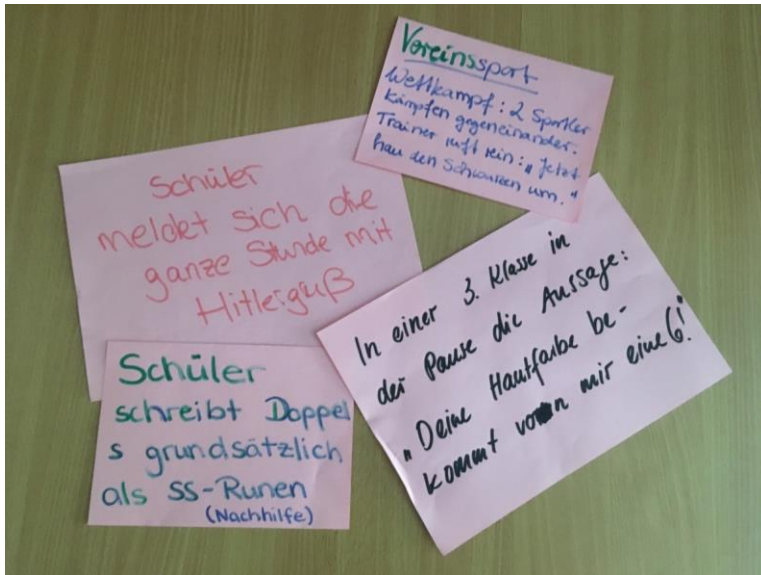 Vereinssport
Wettkampf: 2 Sportler
kämpfen gegeneinander.
Trainer ruft rein: „Jetzt
hau den Schwarzen um."
Schüler
meldet sich die
ganze Stunde mit
Hitlergruß
In einer 3. Klasse in
der Pause die Aussage:
„Deine Hautfarbe be-
kommt von mir eine 6!"
Schüler
schreibt Doppel
s grundsätzlich
als SS-Runen
(Nachhilfe)